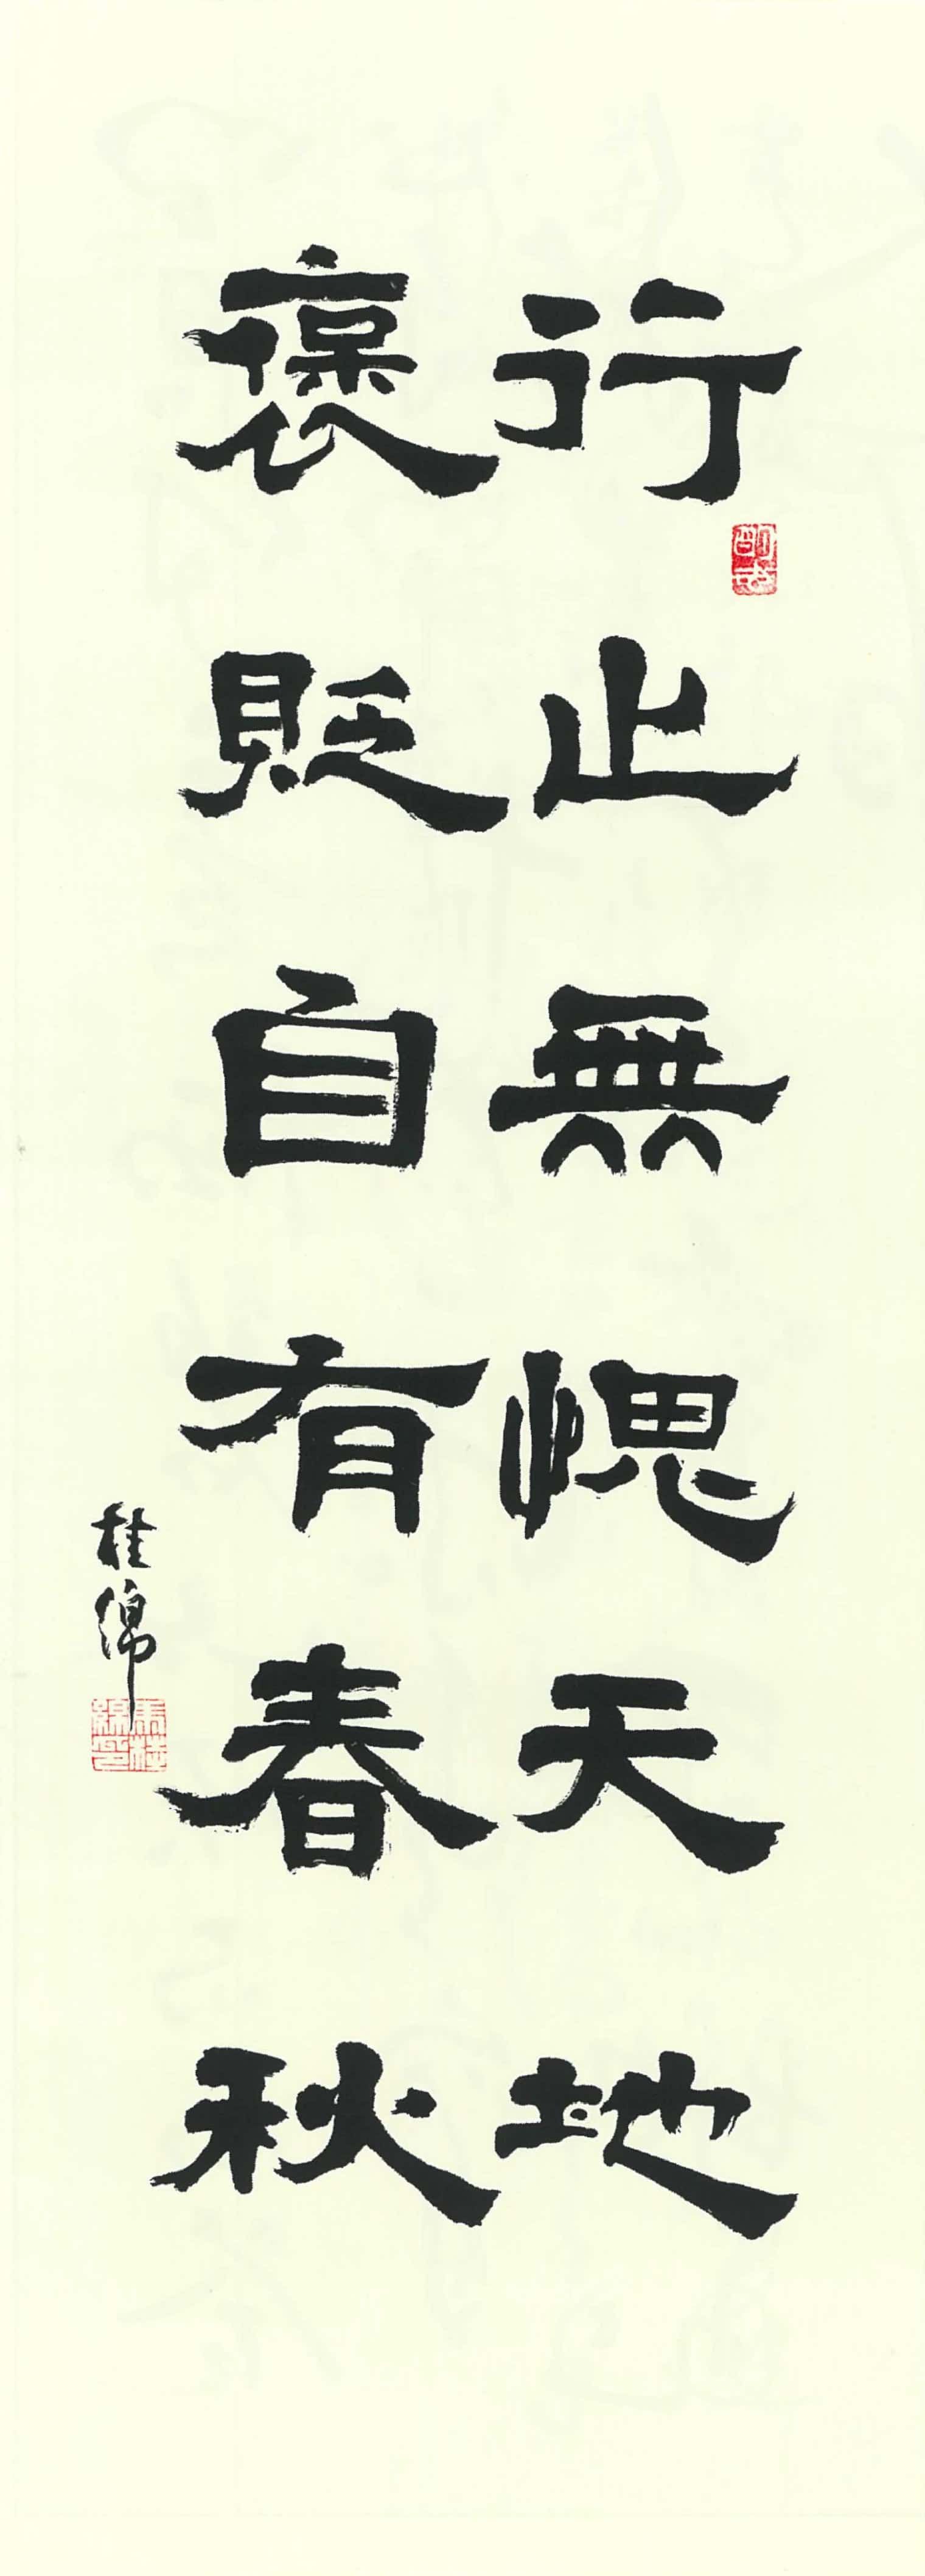 行止無愧天地
褒貶自有春秋
桂綿